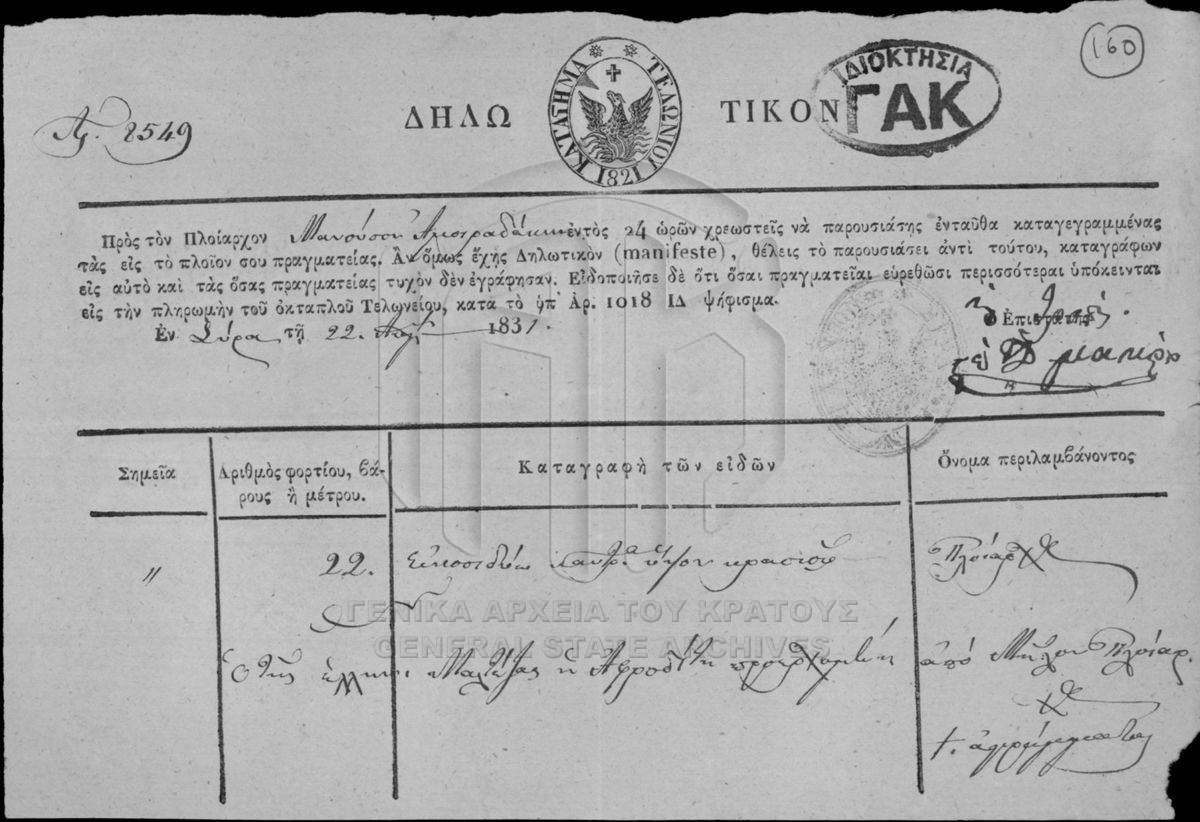 160
ΙΔΙΟΚΤΗΣΙΑ
ΓΑΚ
ΚΑΤΑΣΤΗΜΑ ΤΕΛΩΝΙΟΥ
1821
ΔΗΛΩ ΤΙΚΟΝ
Ἀρ. 2549
Πρὸς τὸν Πλοίαρχον Μανούσον ἐντὸς 24 ὡρῶν χρεωστεῖς νὰ παρουσιάσης ἐνταῦθα καταγεγραμμένας
τὰς εἰς τὸ πλοῖόν σου πραγματείας. Ἂν ὅμως ἔχῃς Δηλωτικὸν (manifeste), θέλεις τὸ παρουσιάσει ἀντὶ τούτου, καταγράφων
εἰς αὐτὸ καὶ τὰς ὅσας πραγματείας τυχὸν δὲν ἐγράφησαν. Εἰδοποιῆσε δὲ ὅτι ὅσαι πραγματεῖαι εὑρεθῶσι περισσότεραι ὑπόκεινται
εἰς τὴν πληρωμὴν τοῦ ὀκταπλοῦ Τελωνείου, κατὰ τὸ ὑπ' Ἀρ. 1018 ΙΔ ψήφισμα.
Ἐν Σύρα τῇ 22. 1831.
Ὁ Ἐπιστάτης
Σημεῖα
Ἀριθμὸς φορτίου, βάρους ἢ μέτρου.
Καταγραφὴ τῶν εἰδῶν
Ὄνομα περιλαμβάνοντος
" 22. Εἰκοσιδύω κρασιοῦ Πλοίαρχος
ΓΕΝΙΚΑ ΑΡΧΕΙΑ ΤΟΥ ΚΡΑΤΟΥΣ
GENERAL STATE ARCHIVES
Ὁ τῆς ἑλλην. ἡ Ἀφροδίτη προερχομένη ἀπὸ Μῆλον Πλοίαρ.
χος